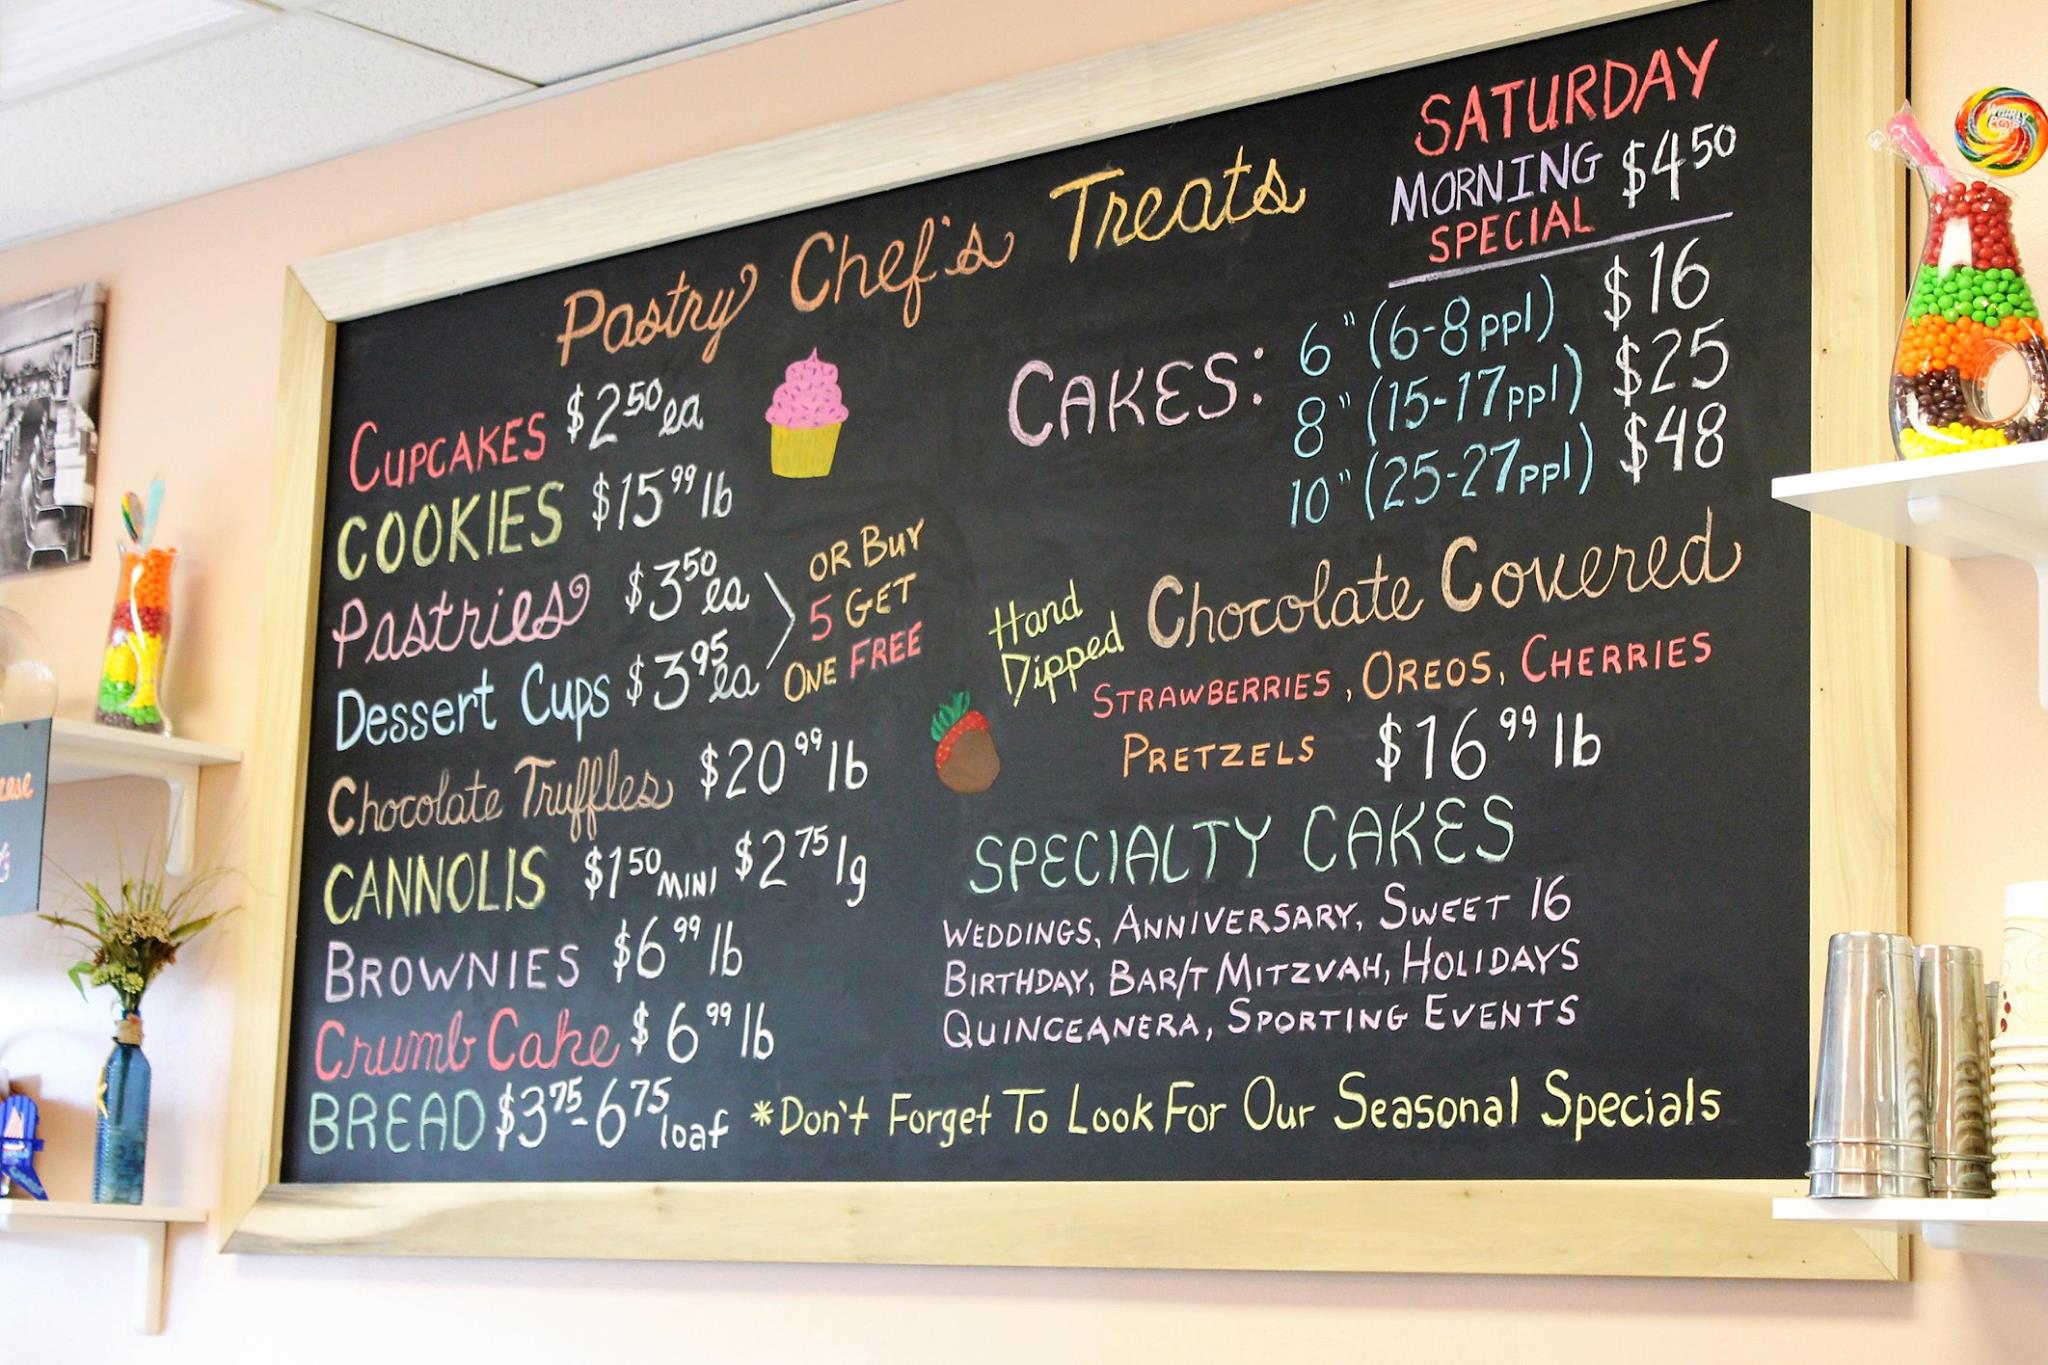 Pastry Chef's Treats
CUPCAKES $2.50 ea
COOKIES $15.99 lb
Pastries $3.50 ea
Dessert Cups $3.95 ea
OR BUY
5 GET
ONE FREE
Chocolate Truffles $20.99 lb
CANNOLIS $1.50 MINI $2.75 lg
BROWNIES $6.99 lb
Crumb Cake $6.99 lb
BREAD $3.75-6.75 loaf
SATURDAY
MORNING $4.50
SPECIAL
CAKES: 6" (6-8 ppl) $16
8" (15-17 ppl) $25
10" (25-27 ppl) $48
Hand
Dipped
Chocolate Covered
STRAWBERRIES, OREOS, CHERRIES
PRETZELS $16.99 lb
SPECIALTY CAKES
WEDDINGS, ANNIVERSARY, SWEET 16
BIRTHDAY, BAR/T MITZVAH, HOLIDAYS
QUINCEANERA, SPORTING EVENTS
*Don't Forget To Look For Our Seasonal Specials